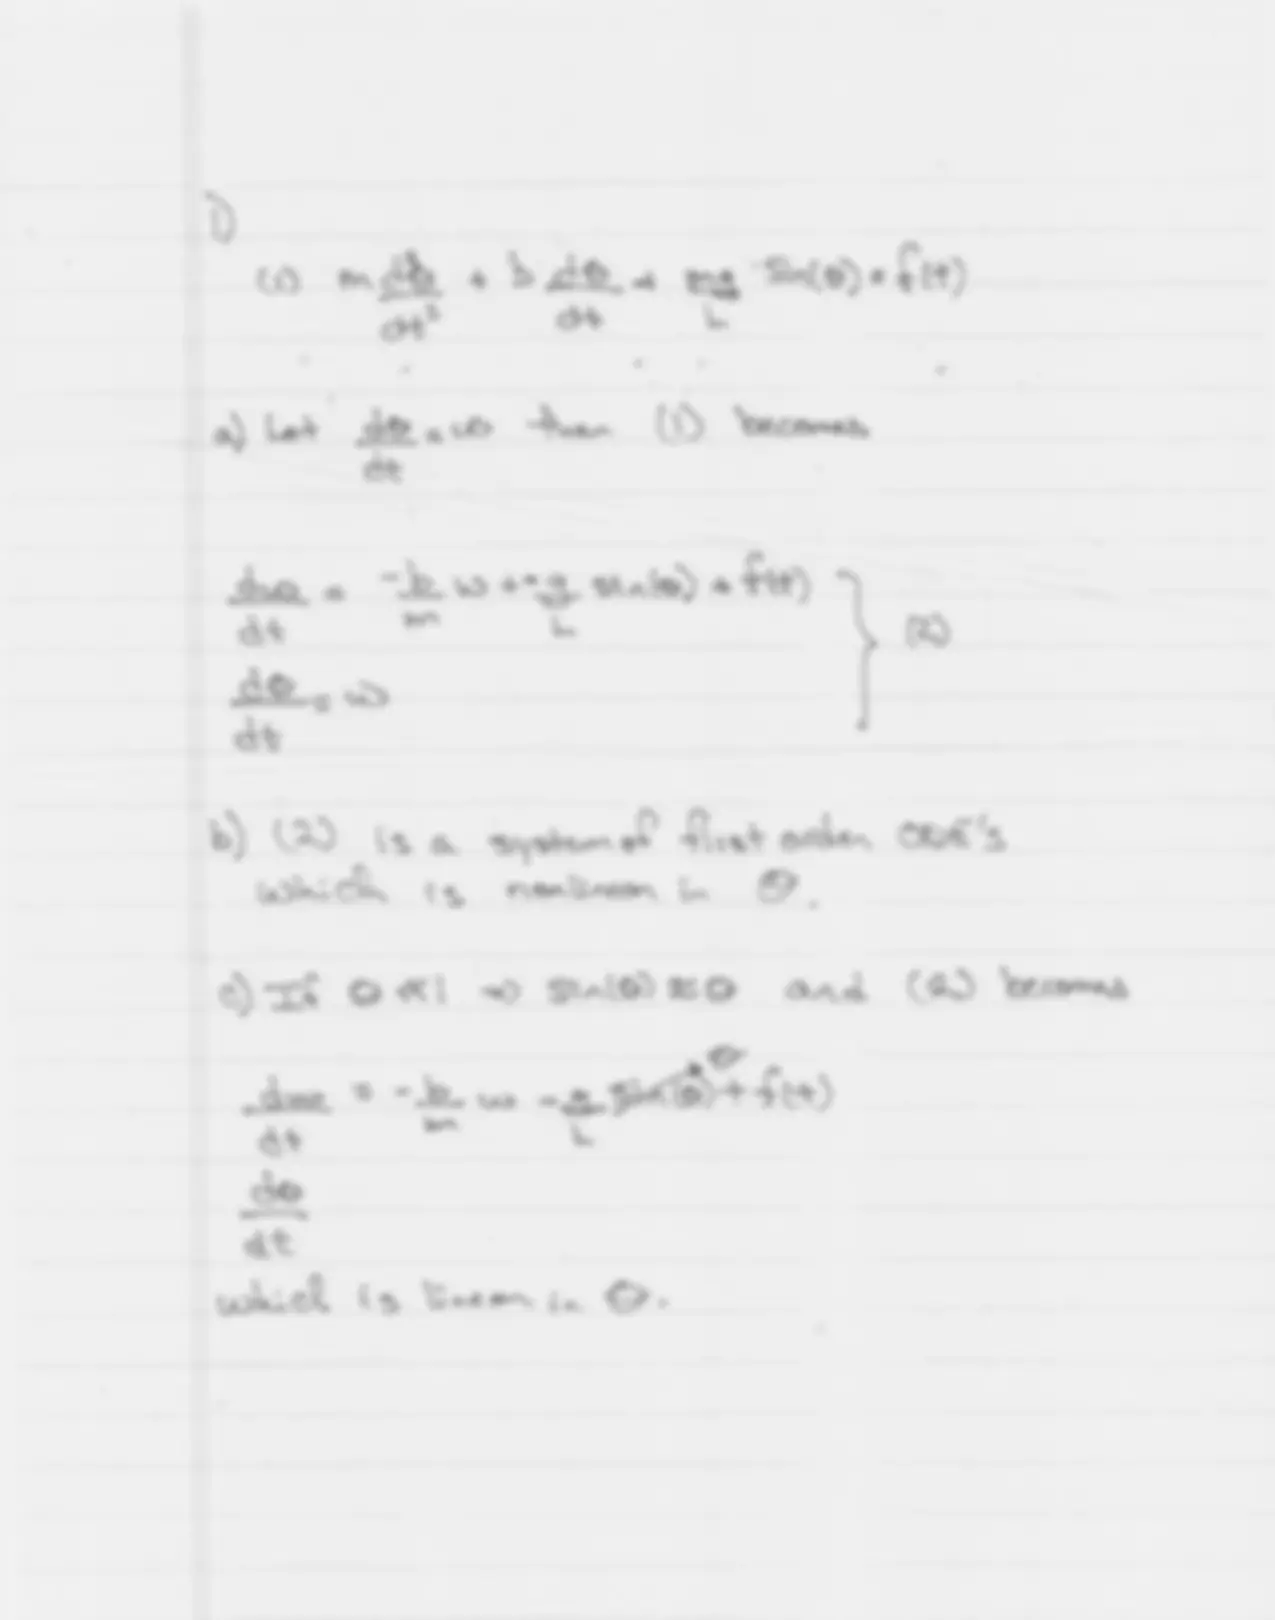 1)
(1) m d²θ/dt² + b dθ/dt + mg/L sin(θ) = f(t)
a) Let dθ/dt = ω then (1) becomes
dω/dt = -b/m ω + -g/L sin(θ) + f(t)
(2)
dθ/dt = ω
b) (2) is a system of first order ODE's
which is nonlinear in θ.
c) If θ ≪ 1 ⇒ sin(θ) ≈ θ and (2) becomes
θ
dω/dt = -b/m ω - g/L sin(θ) + f(t)
dθ/dt
which is linear in θ.